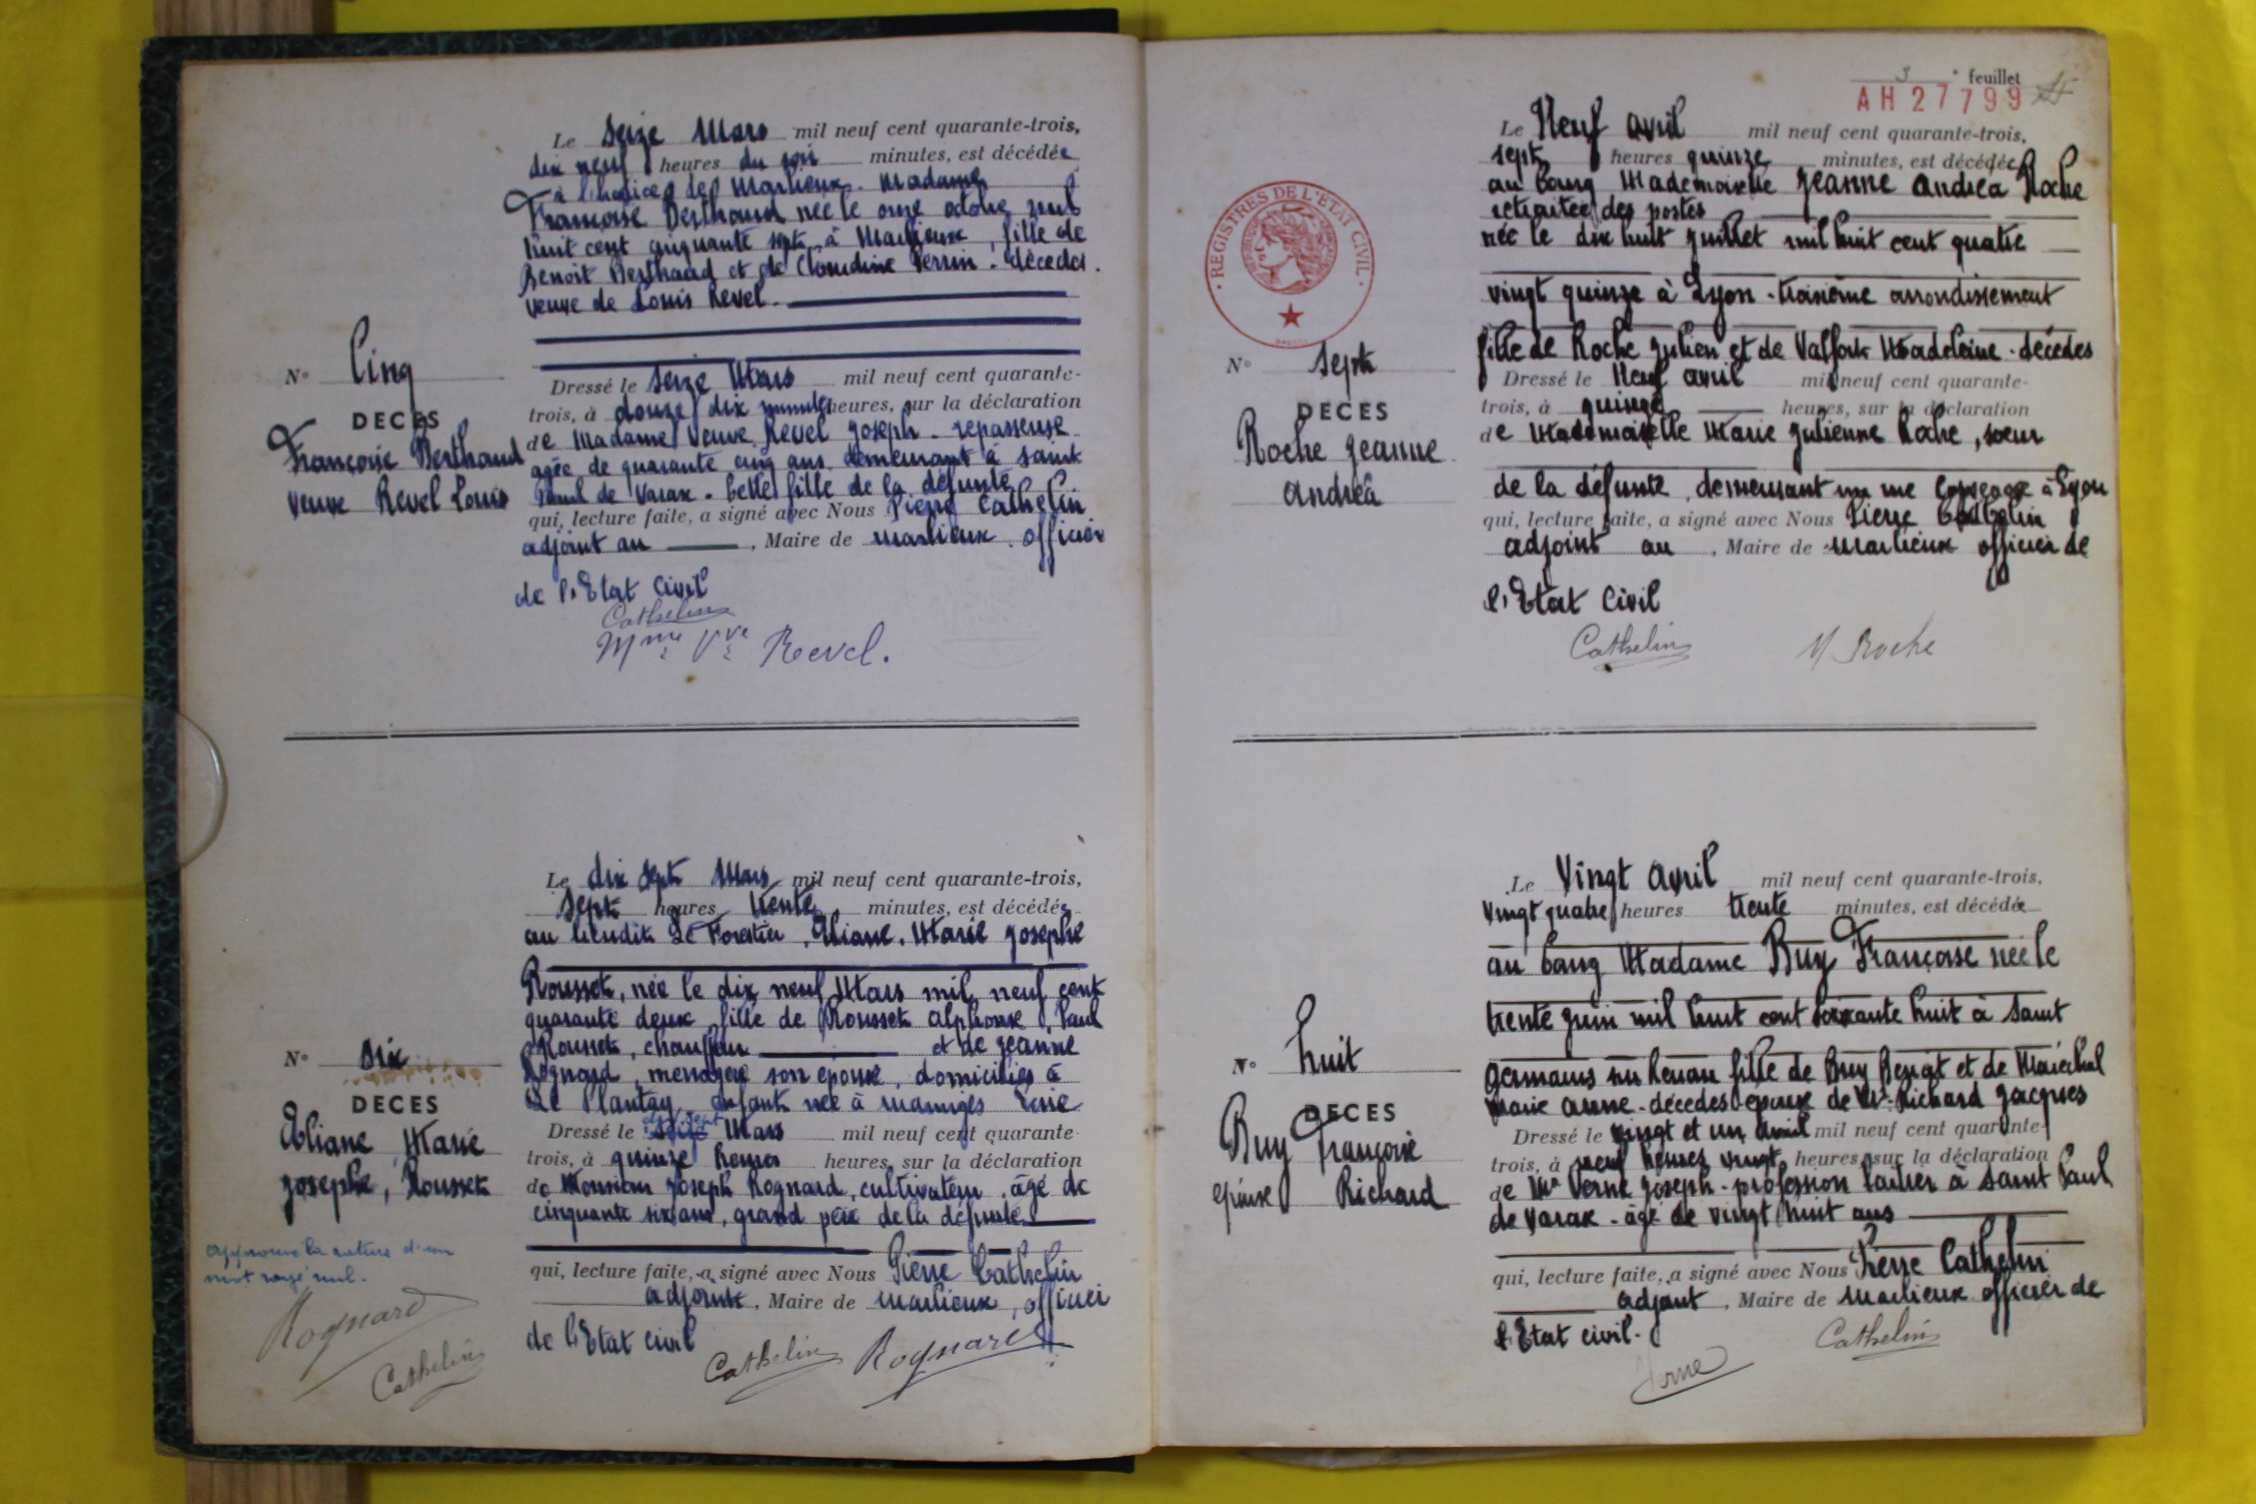 Le Seize Mars mil neuf cent quarante-trois,
dix neuf heures du soir minutes, est décédée
à l'hospice de Marlieux. Madame
Françoise Berthaud née le onze octobre mil
huit cent cinquante sept à Marlieux, fille de
Benoit Berthaud et de Claudine Perrin. décédés.
veuve de Louis Revel.
N° Cinq
DECES
Françoise Berthaud
veuve Revel Louis
Dressé le seize Mars mil neuf cent quarante-
trois, à douze dix minutes heures, sur la déclaration
de Madame Veuve Revel Joseph - repasseuse
agée de quarante cinq ans demeurant à saint
Paul de Varax. belle fille de la défunte
qui, lecture faite, a signé avec Nous Pierre Cathelin
adjoint au , Maire de Marlieux. officier
de l'Etat Civil
Cathelin
Mme Vve Revel.
Le dix sept Mars mil neuf cent quarante-trois,
Sept heures trente minutes, est décédée
au lieudit Le Forestier, Eliane. Marie Josephe
Rousset, née le dix neuf Mars mil neuf cent
quarante deux fille de Rousset Alphonse, Paul
Rousset, chauffeur et de Jeanne
Rognard, menagere son epouse, domiciliés à
Le Plantay enfant née à
N° six
DECES
Eliane Marie
Josephe, Rousset
Dressé le dix sept Mars mil neuf cent quarante-
trois, à quinze heures heures, sur la déclaration
de Monsieur Joseph Rognard, cultivateur, âgé de
cinquante six ans, grand père de la défunte
qui, lecture faite, a signé avec Nous Pierre Cathelin
adjoint, Maire de Marlieux, officier
de l'Etat civil
Cathelin Rognard
approuvé la rature d'un
mot rayé nul.
Rognard
Cathelin
3 ° feuillet
AH 27799
REGISTRES DE L'ÉTAT CIVIL
Le Neuf avril mil neuf cent quarante-trois,
sept heures quinze minutes, est décédée
au bourg Mademoiselle Jeanne Andréa Roche
retraitée des postes
née le dix huit juillet mil huit cent quatre
vingt quinze à Lyon - troisième arrondissement
fille de Roche Julien et de Valfort Madeleine - décédés
N° sept
DECES
Roche Jeanne
Andréa
Dressé le Neuf avril mil neuf cent quarante-
trois, à quinze heures, sur la déclaration
de Mademoiselle Marie Julienne Roche, soeur
de la défunte, demeurant rue à Lyon
qui, lecture faite, a signé avec Nous Pierre Cathelin
adjoint au , Maire de Marlieux officier de
l'Etat Civil
Cathelin M Roche
Le Vingt avril mil neuf cent quarante-trois,
vingt quatre heures trente minutes, est décédée
au bourg Madame Buy Françoise née le
trente juin mil huit cent soixante huit à saint
Germains sur Renon fille de Buy Benoit et de Maréchal
Marie Anne - décédés epouse de Mr Richard Jacques
N° huit
DECES
Buy Françoise
epouse Richard
Dressé le vingt et un avril mil neuf cent quarante-
trois, à neuf heures vingt heures, sur la déclaration
de Mr Verne Joseph - profession laitier à saint Paul
de Varax - âgé de vingt huit ans
qui, lecture faite, a signé avec Nous Pierre Cathelin
adjoint, Maire de Marlieux officier de
l'Etat civil.
Verne Cathelin